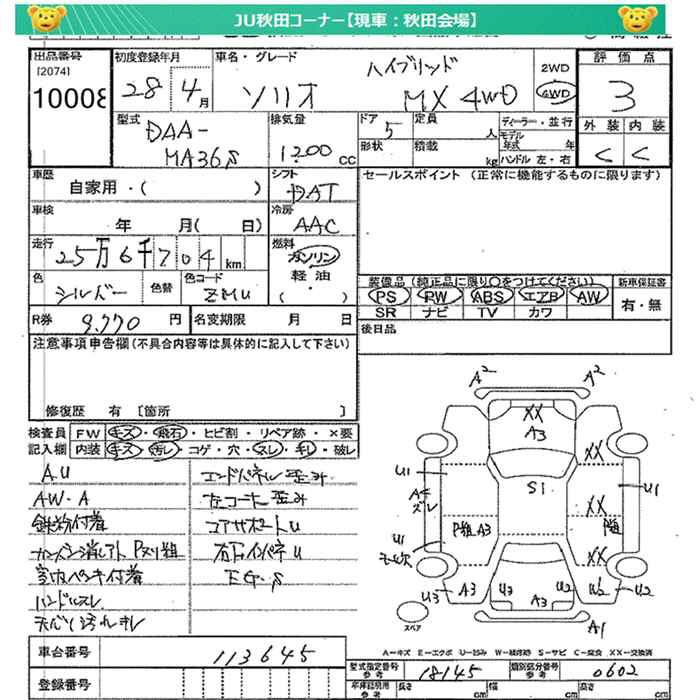 JU秋田コーナー【現車：秋田会場】
出品番号 初度登録年月 車名・グレード 評価点
[2074]
10008 28 4月 ソリオ ハイブリッド MX 4WD 2WD 4WD 3
型式 DAA-MA36S 排気量 1200 CC ドア 5 定員 人 ディーラー・並行
形状 積載 kg モデル年式 年 ハンドル 左・右
外装 内装
C C
車歴 自家用・( ) シフト DAT
セールスポイント (正常に機能するものに限ります)
車検 年 月( 日) 冷房 AAC
走行 25万6千704km 燃料 ガソリン 軽油 ( )
色 シルバー 色替 色コード ZMU
装備品 (純正品に限り○をつけてください) 新車保証書
PS PW ABS エアB AW 有・無
SR ナビ TV カワ
R券 9,770 円 名変期限 月 日
後日品
注意事項申告欄 (不具合内容等は具体的に記入して下さい)
修復歴 有 [箇所 ]
検査員記入欄 FW キズ・飛石・ヒビ割・リペア跡・×要
内装 キズ・汚レ・コゲ・穴・スレ・キレ・破レ
A.U
AW・A
鉄粉付着
室内ペンキ付着
ハンドルスレ
天バリ汚れ キレ
エンドパネル歪み
コアサポートU
右インパネU
EG.S
A2 A2
XX
A3
XX
U1 S1 U1
Aキズレ XX
P粗 A3 P粗
U1
XX
U3 A3 U3 A3 U2 W2 U2
A1
スペア
A－キズ E－エクボ U－凹み W－補修跡 S－サビ C－腐食 XX－交換済
車台番号 113645
型式指定番号 参考 18145 類別区分番号 参考 0602
登録番号
車庫証明用 参考 長さ cm 幅 cm 高さ cm